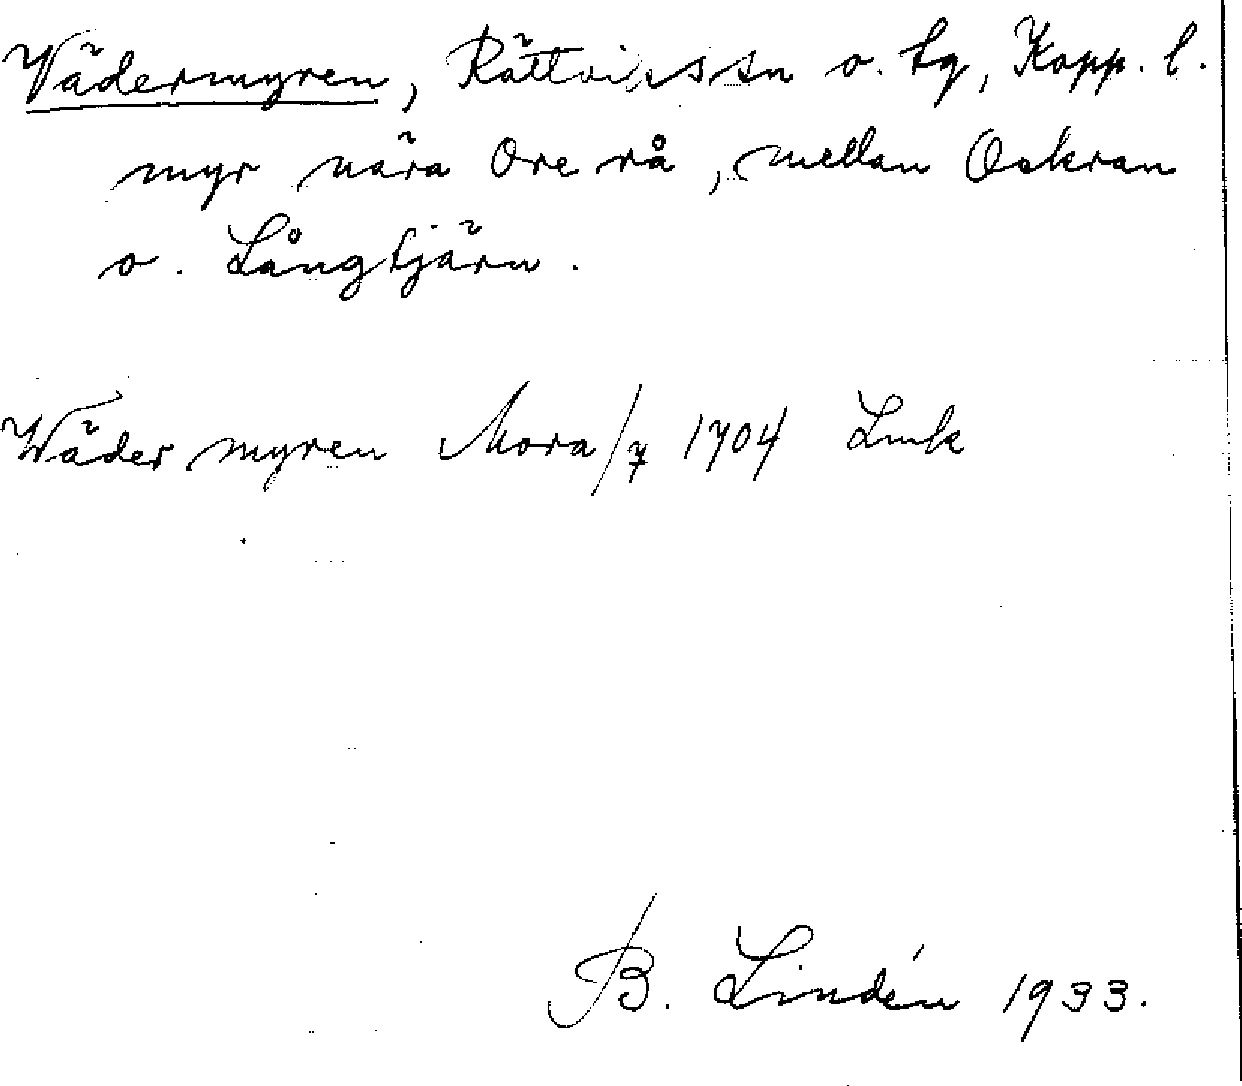 Vädermyren, Rättvikssn o. tg, Kopp. l.
myr nära Ore rå, mellan Oskran
o. Långtjärn.
Wäder myren Mora/7 1704 Lmk
B. Lindén 1933.